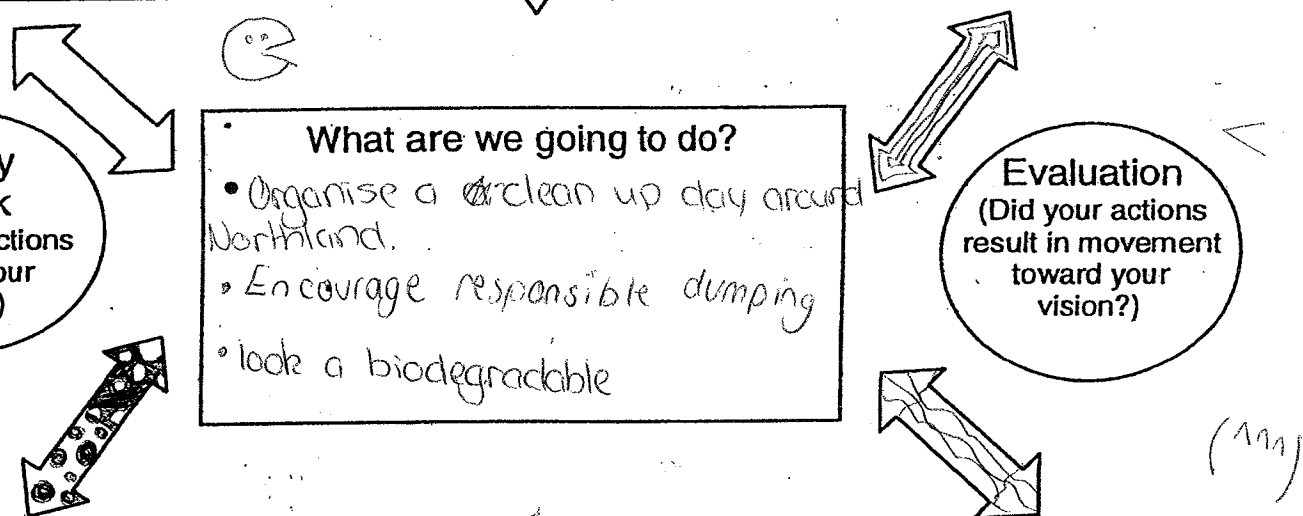 What are we going to do?
• Organise a clean up day around
Northland.
• Encourage responsible dumping
• look a biodegradable
y
k
ctions
our
)
Evaluation
(Did your actions
result in movement
toward your
vision?)